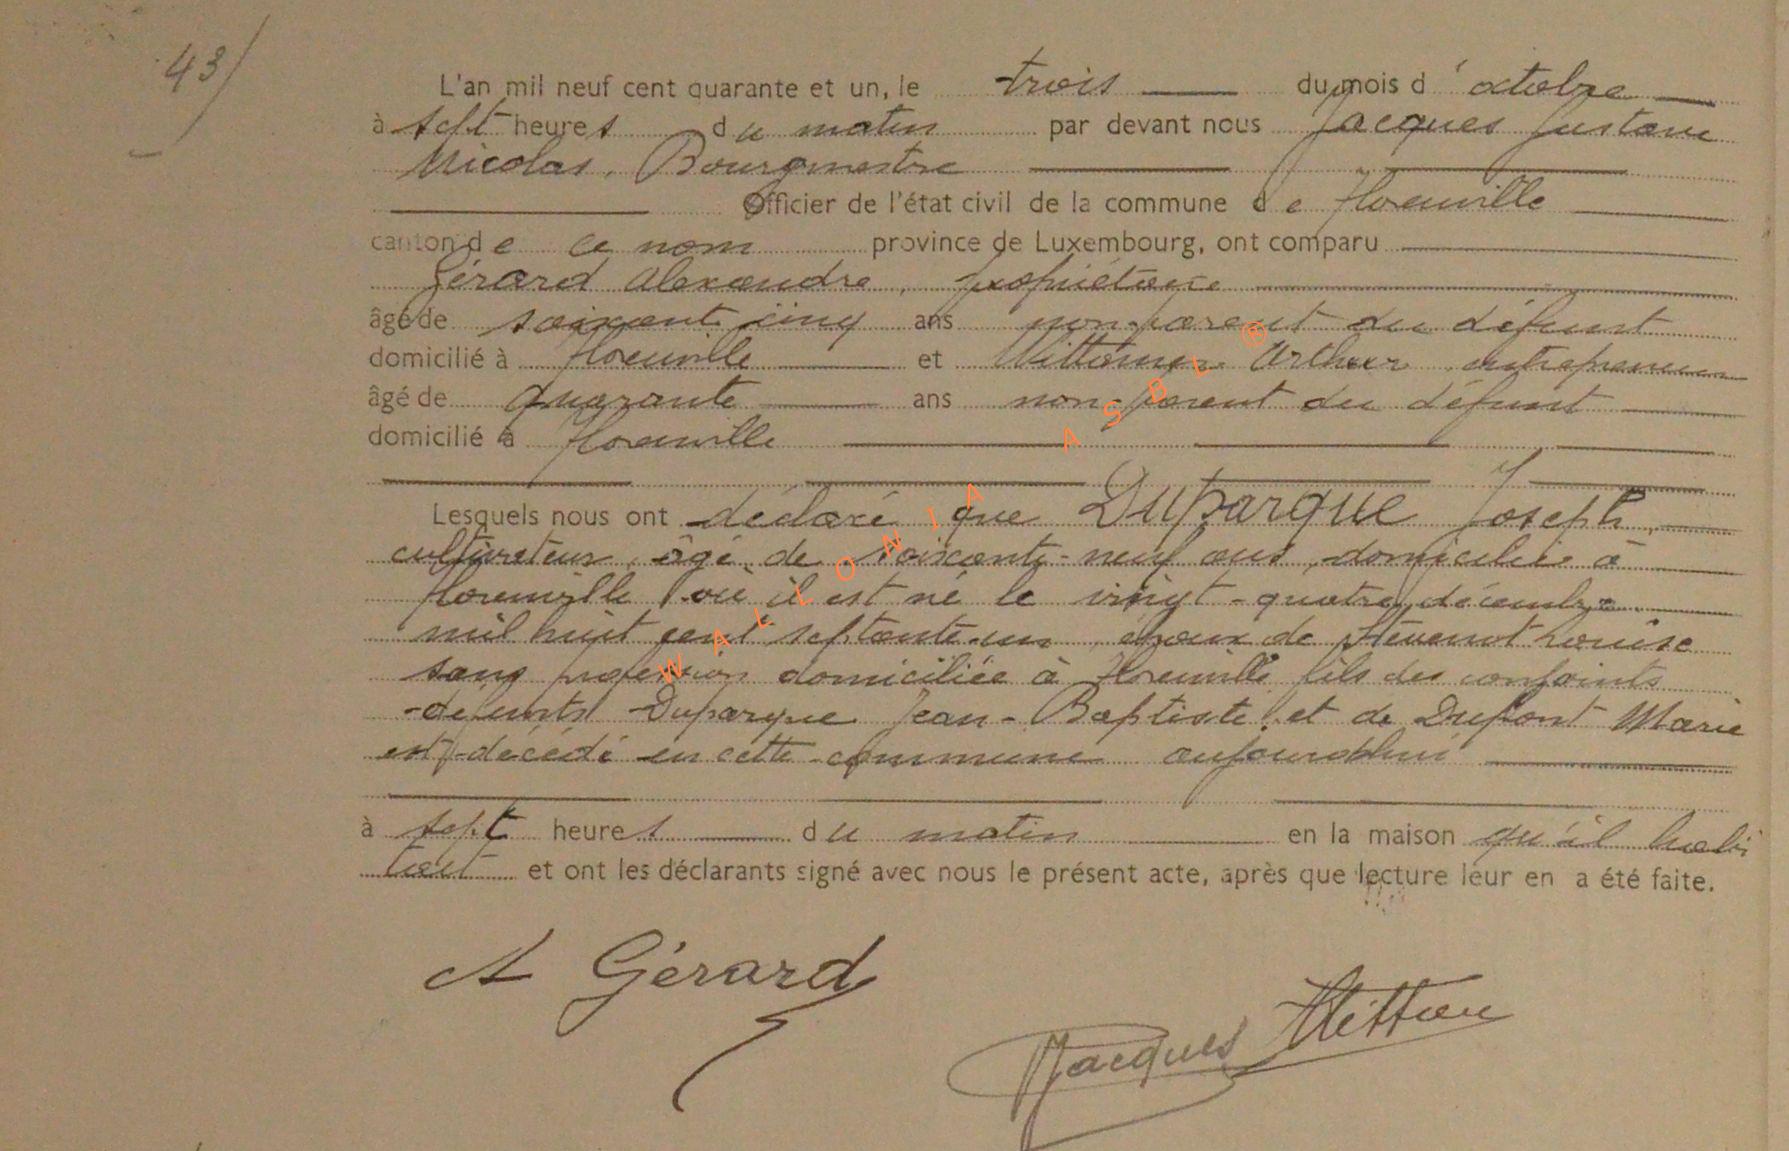 43/
L'an mil neuf cent quarante et un, le trois du mois d'octobre
à sept heures du matin par devant nous Jacques Gustave
Nicolas, Bourgmestre
Officier de l'état civil de la commune de Florenville
canton de ce nom province de Luxembourg, ont comparu
Gérard Alexandre, propriétaire
âgé de soixante cinq ans non-parent du défunt
domicilié à Florenville et Arthur, entrepreneur
âgé de quarante ans non-parent du défunt
domicilié à Florenville
Lesquels nous ont déclaré que Duparque Joseph,
cultivateur, âgé de soixante-neuf ans, domicilié à
Florenville où il est né le vingt-quatre décembre
mil huit cent septante-un, époux de Stevenot Louise
sans profession domiciliée à Florenville, fils des conjoints
défunts Duparque Jean-Baptiste et de Dupont Marie
est décédé en cette commune aujourd'hui
à sept heures du matin en la maison qu'il habi
tait et ont les déclarants signé avec nous le présent acte, après que lecture leur en a été faite.
A Gérard
Jacques
WALLONIA ASBL ®